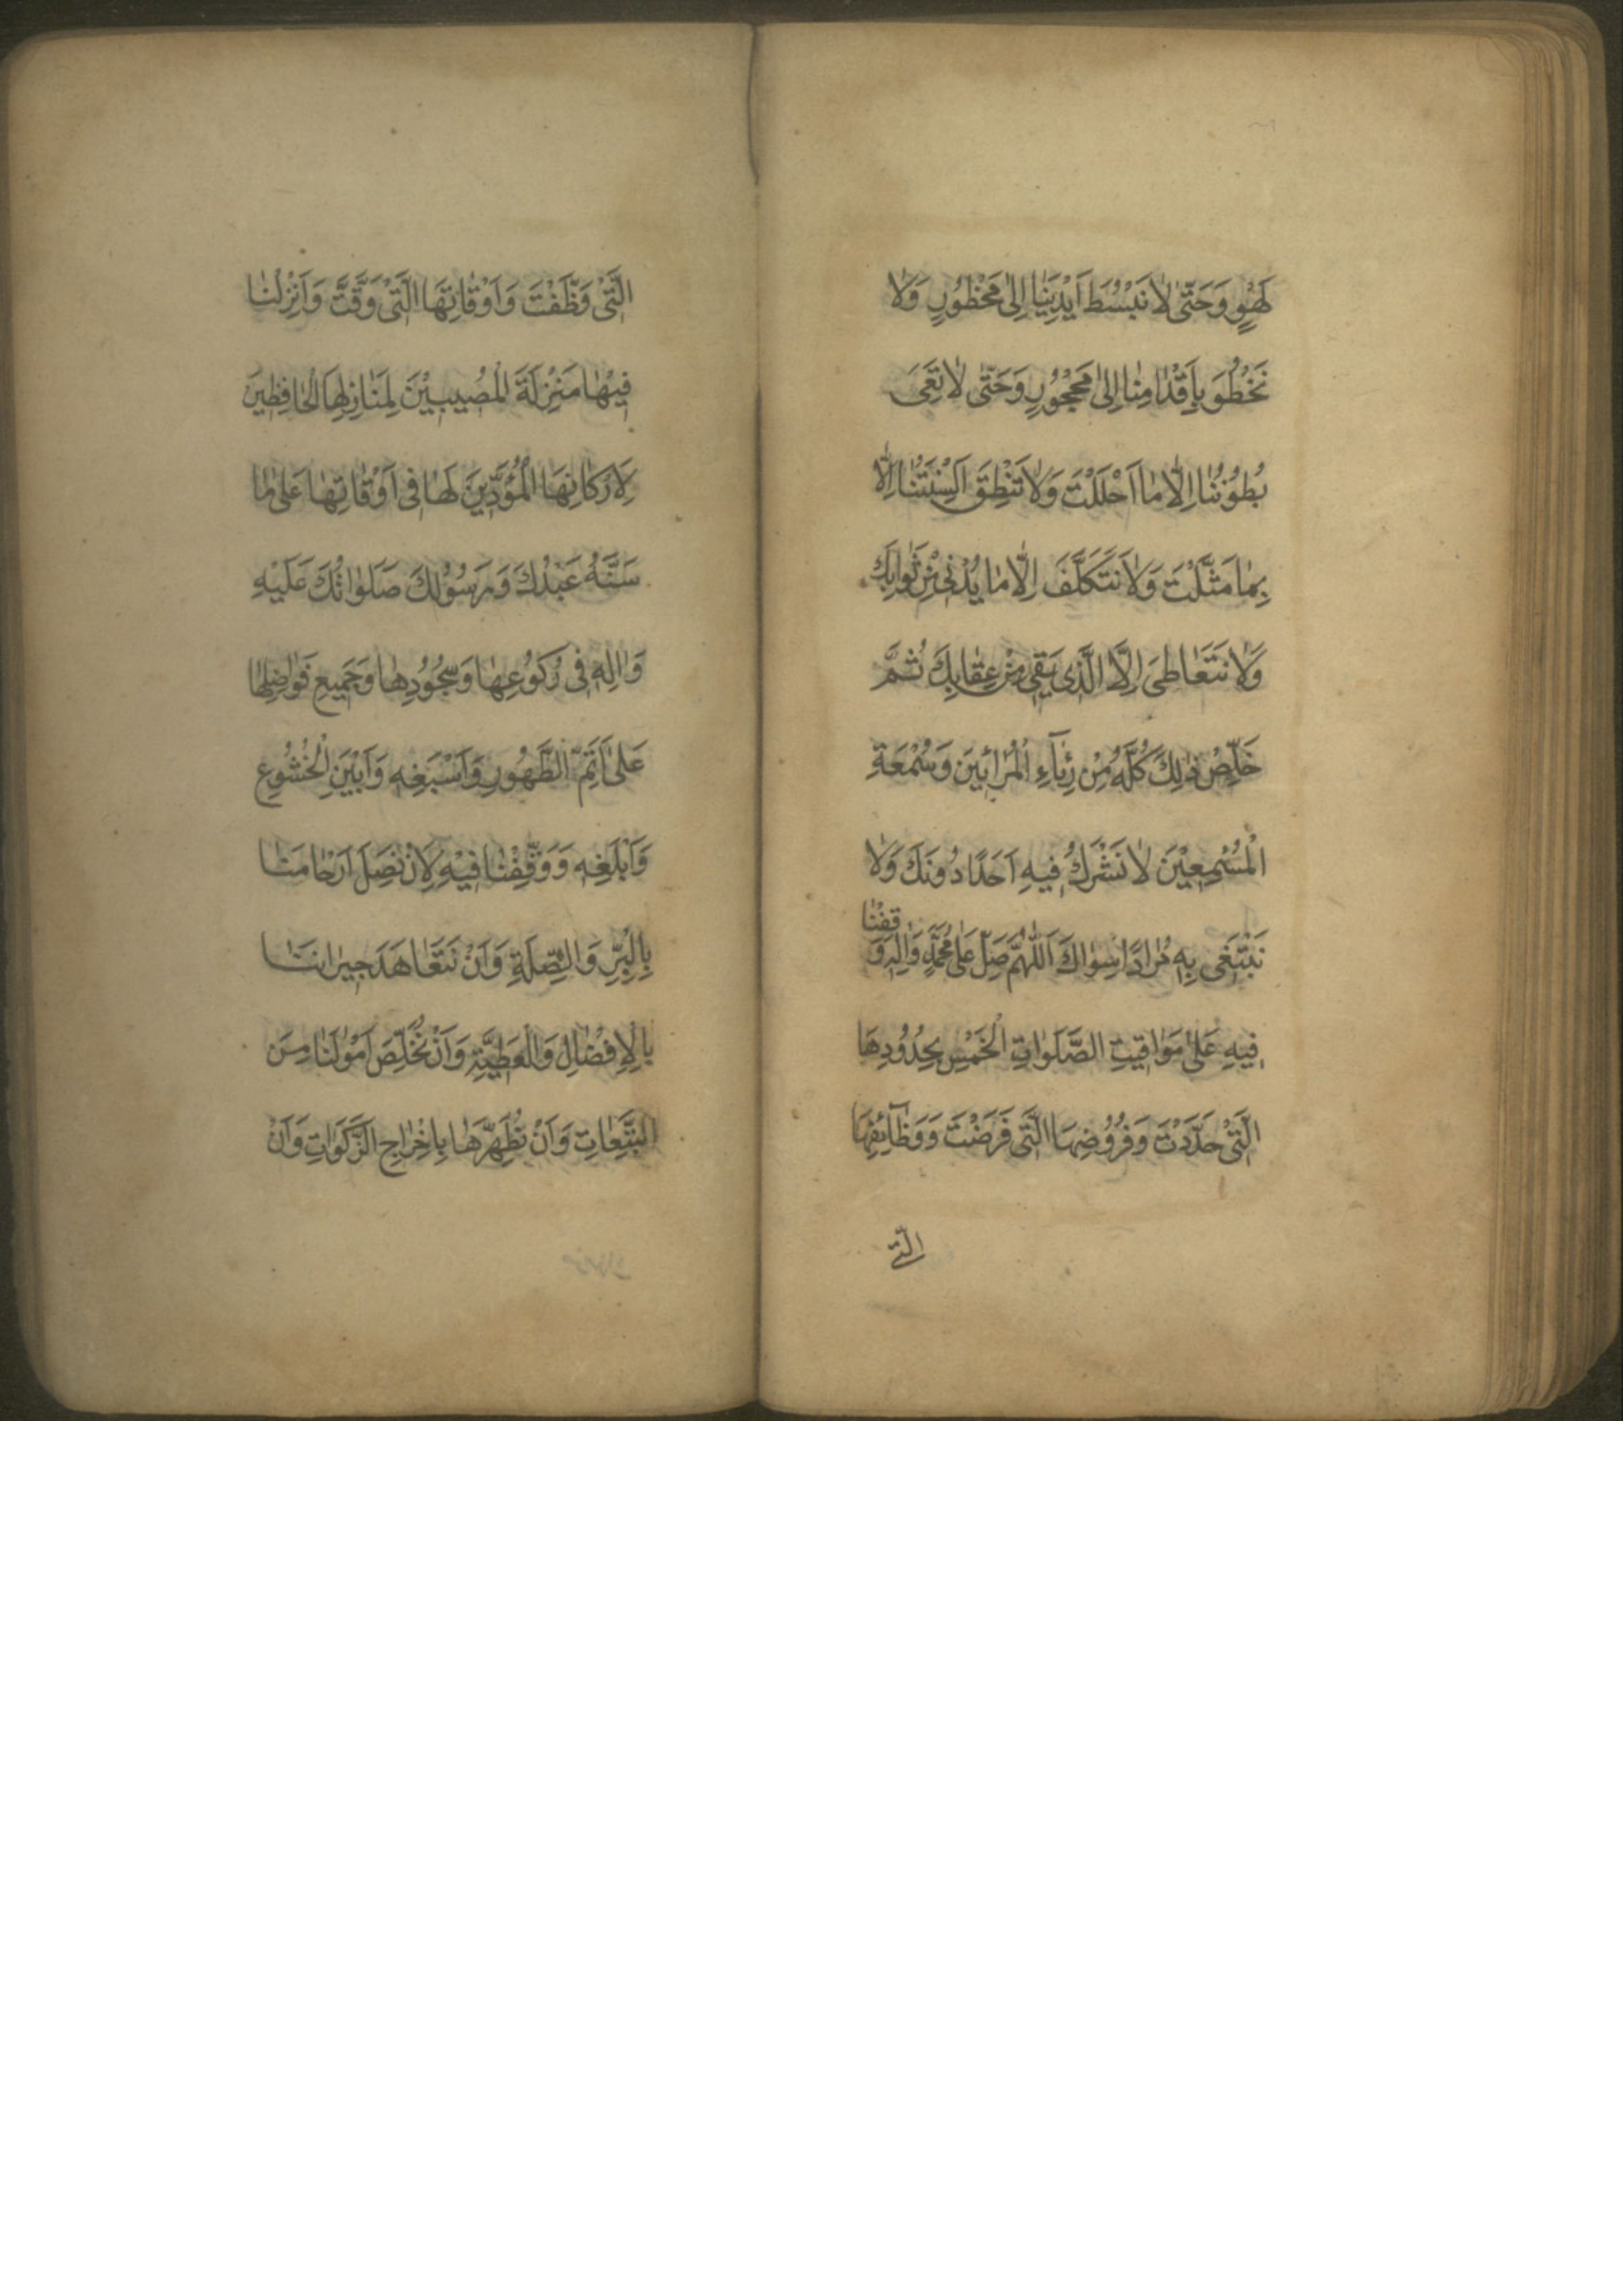 لَهْوٍ وَحَتّٰى لَا نَبْسُطَ اَيْدِيَنَا اِلىٰ مَحْظُورٍ وَلَا
نَخْطُوَ بِاَقْدَامِنَا اِلىٰ مَحْجُوْرٍ وَحَتّٰى لَا تَعِىَ
بُطُوْنُنَا اِلَّا مَا اَحْلَلْتَ وَلَا تَنْطِقَ اَلْسِنَتُنَا اِلَّا
بِمَا مَثَّلْتَ وَلَا نَتَكَلَّفَ اِلَّا مَا يُدْنِىْ مِنْ ثَوَابِكَ
وَلَا نَتَعَاطىَ اِلَّا الَّذِى يَقِى مِنْ عِقَابِكَ ثُمَّ
خَلِّصْ ذٰلِكَ كُلَّهُ مِنْ رِئَآءِ الْمُرَائِينَ وَسُمْعَةِ
الْمُسْمِعِيْنَ لَا نَشْرَكُ فِيهِ اَحَدًا دُونَكَ وَلَا
نَبْتَغَى بِهِ مُرَادًا سِوَاكَ اَللّٰهُمَّ صَلِّ عَلىٰ مُحَمَّدٍ وَاٰلِهِ وَ
قِفْنَا
فِيهِ عَلىٰ مَوَاقِيتِ الصَّلَوَاتِ الْخَمْسِ بِحُدُوْدِهَا
الَّتِىْ حَدَّدْتَ وَفُرُوْضِهَا الَّتِى فَرَضْتَ وَوَظَآئِفِهَا
الّتى
الَّتِىْ وَظَّفْتَ وَاَوْقَاتِهَا الَّتِىْ وَقَّتَّ وَاَنْزِلْنَا
فِيْهَا مَنْزِلَةَ الْمُصِيبِيْنَ لِمَنَازِلِهَا الْحَافِظِينَ
لِاَرْكَانِهَا الْمُؤَدِّينَ لَهَا فِى اَوْقَاتِهَا عَلىٰ مَا
سَنَّهُ عَبْدُكَ وَرَسُوْلُكَ صَلَوَاتُكَ عَلَيْهِ
وَاٰلِهِ فِى رُكُوْعِهَا وَسُجُوْدِهَا وَجَمِيعِ فَوَاضِلِهَا
عَلىٰ اَتَمِّ الطَّهُورِ وَاَسْبَغِهِ وَاَبْيَنِ الْخُشُوْعِ
وَاَبْلَغِهِ وَوَفِّقْنَا فِيْهِ لِاَنْ نَصِلَ اَرْحَامَنَا
بِالْبِرِّ وَالصِّلَةِ وَاَنْ نَتَعَاهَدَ جِيرَانَنَا
بِالْاِفْضَالِ وَالْعَطِيَّةِ وَاَنْ نُخَلِّصَ اَمْوَالَنَا مِنَ
التَّبِعَاتِ وَاَنْ نُطَهِّرَهَا بِاِخْرَاجِ الزَّكَوَاتِ وَاَنْ